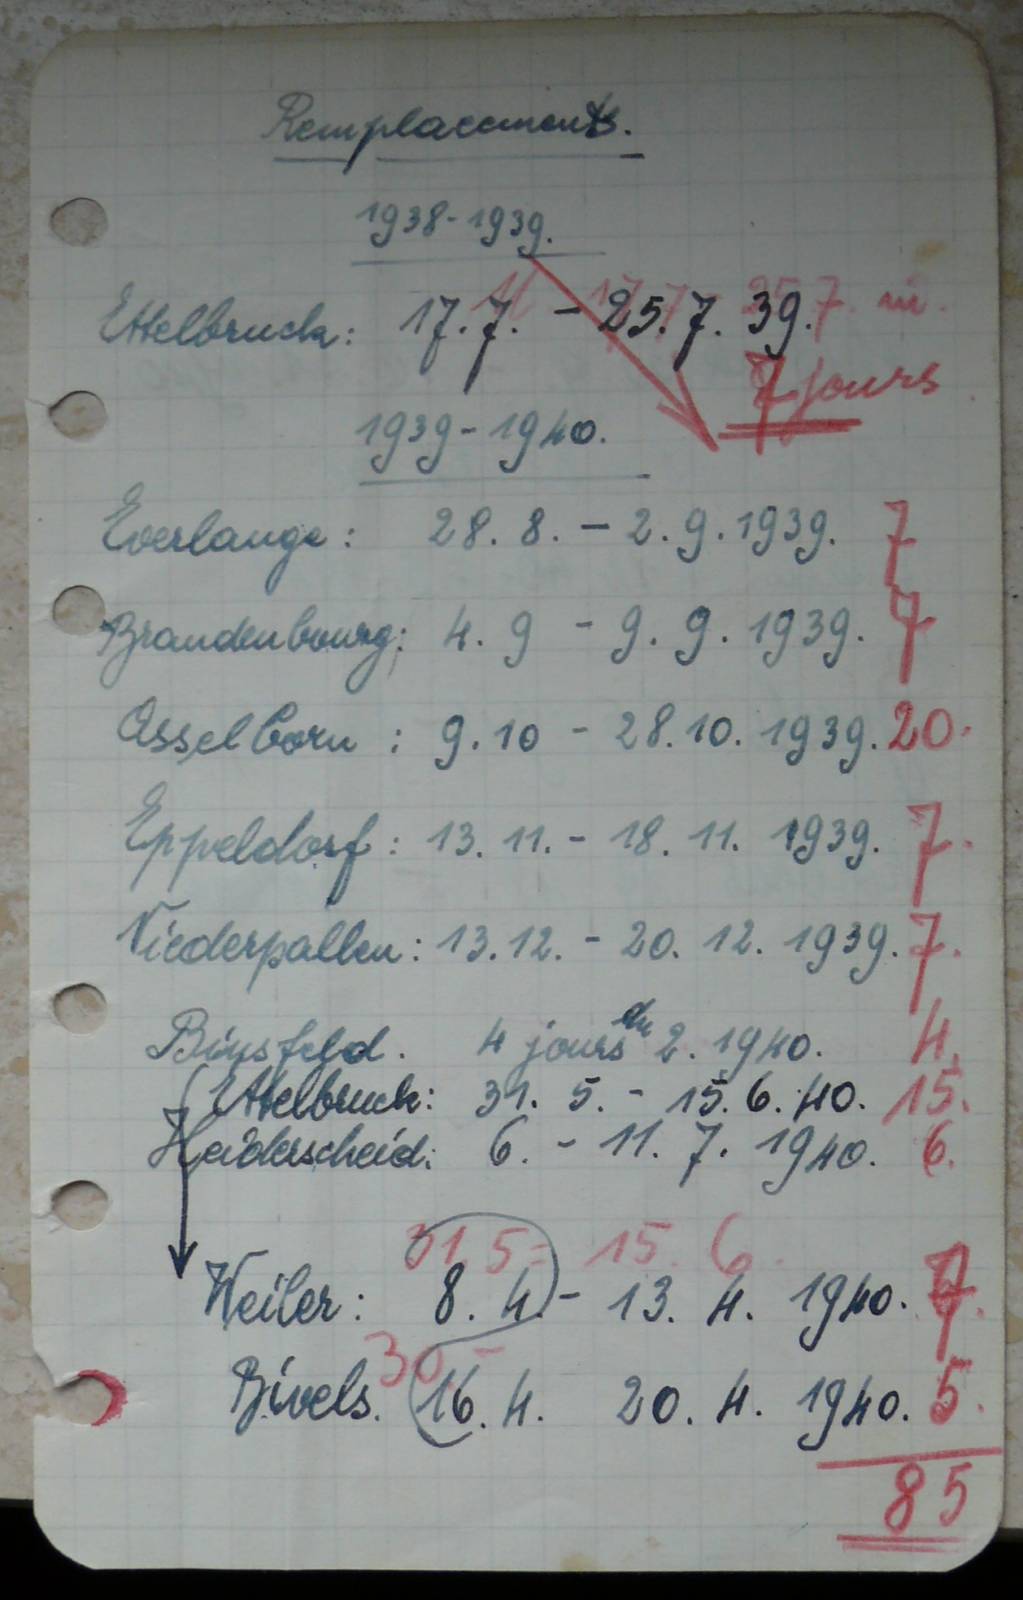 Remplacements.
1938-1939.
Ettelbruck: 17.7. - 25.7. 39.
7 jours
1939-1940.
Everlange: 28. 8. - 2. 9. 1939. 7
Brandenbourg: 4. 9 - 9. 9. 1939. 7
Asselborn: 9.10 - 28.10. 1939. 20.
Eppeldorf: 13. 11. - 18. 11. 1939. 7.
Niederpallen: 13.12. - 20. 12. 1939. 7.
Binsfeld. 4 jours du 2. 1940. 4.
Ettelbruck: 31. 5. - 15. 6. 40. 15.
Heiderscheid: 6. - 11. 7. 1940. 6.
31.5 - 15. 6.
Weiler: 8. 4. - 13. 4. 1940. 7.
30. -
Bivels. 16. 4. 20. 4. 1940. 5.
85